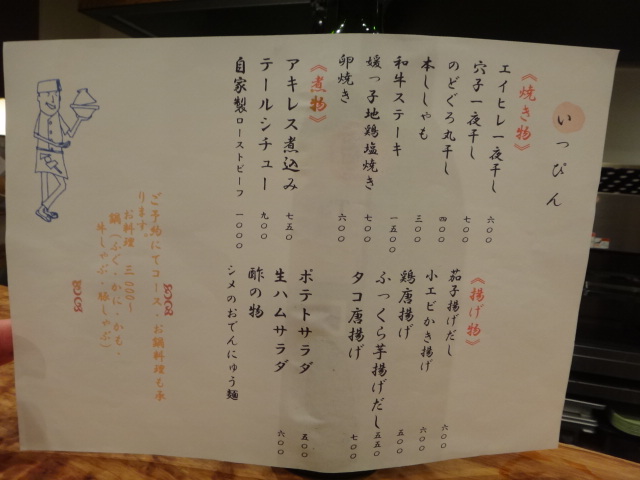 いっぴん
《焼き物》
エイヒレ一夜干し 六〇〇
穴子一夜干し 七〇〇
のどぐろ丸干し 四〇〇
本ししゃも 三〇〇
和牛ステーキ 一五〇〇
媛っ子地鶏塩焼き 七〇〇
卵焼き 六〇〇
《煮物》
アキレス煮込み 七五〇
テールシチュー 九〇〇
自家製ローストビーフ 一〇〇〇
《揚げ物》
茄子揚げだし 六〇〇
小エビかき揚げ 六〇〇
鶏唐揚げ 五〇〇
ふっくら芋揚げだし 五五〇
タコ唐揚げ 七〇〇
ポテトサラダ 五〇〇
生ハムサラダ 六〇〇
酢の物
シメのおでんにゅう麺
ご予約にてコース、お鍋料理も承
ります。
お料理 三〇〇〇〜
鍋（ふぐ・かに・かも・
牛しゃぶ・豚しゃぶ）